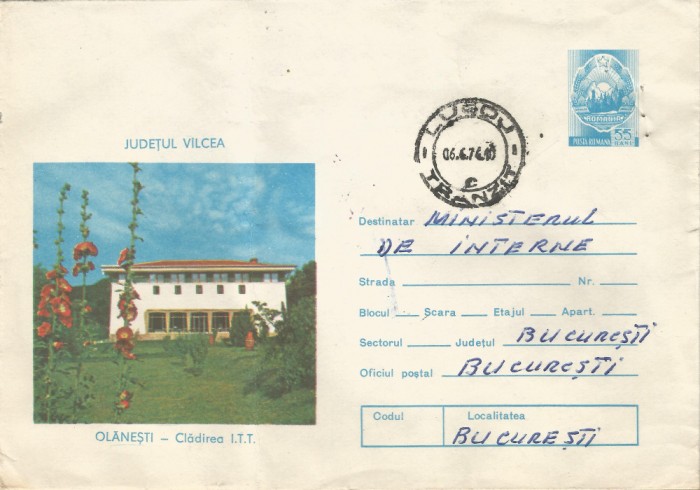 JUDEŢUL VÎLCEA
OLĂNEŞTI – Clădirea I.T.T.
ROMÂNIA
POŞTA ROMÂNĂ 55 BANI
LUGOJ
06.6.76
TRANZIT
Destinatar MINISTERUL
DE INTERNE
Strada Nr.
Blocul Scara Etajul Apart.
Sectorul Judeţul BUCUREŞTI
Oficiul poştal BUCUREŞTI
Codul Localitatea
BUCUREŞTI